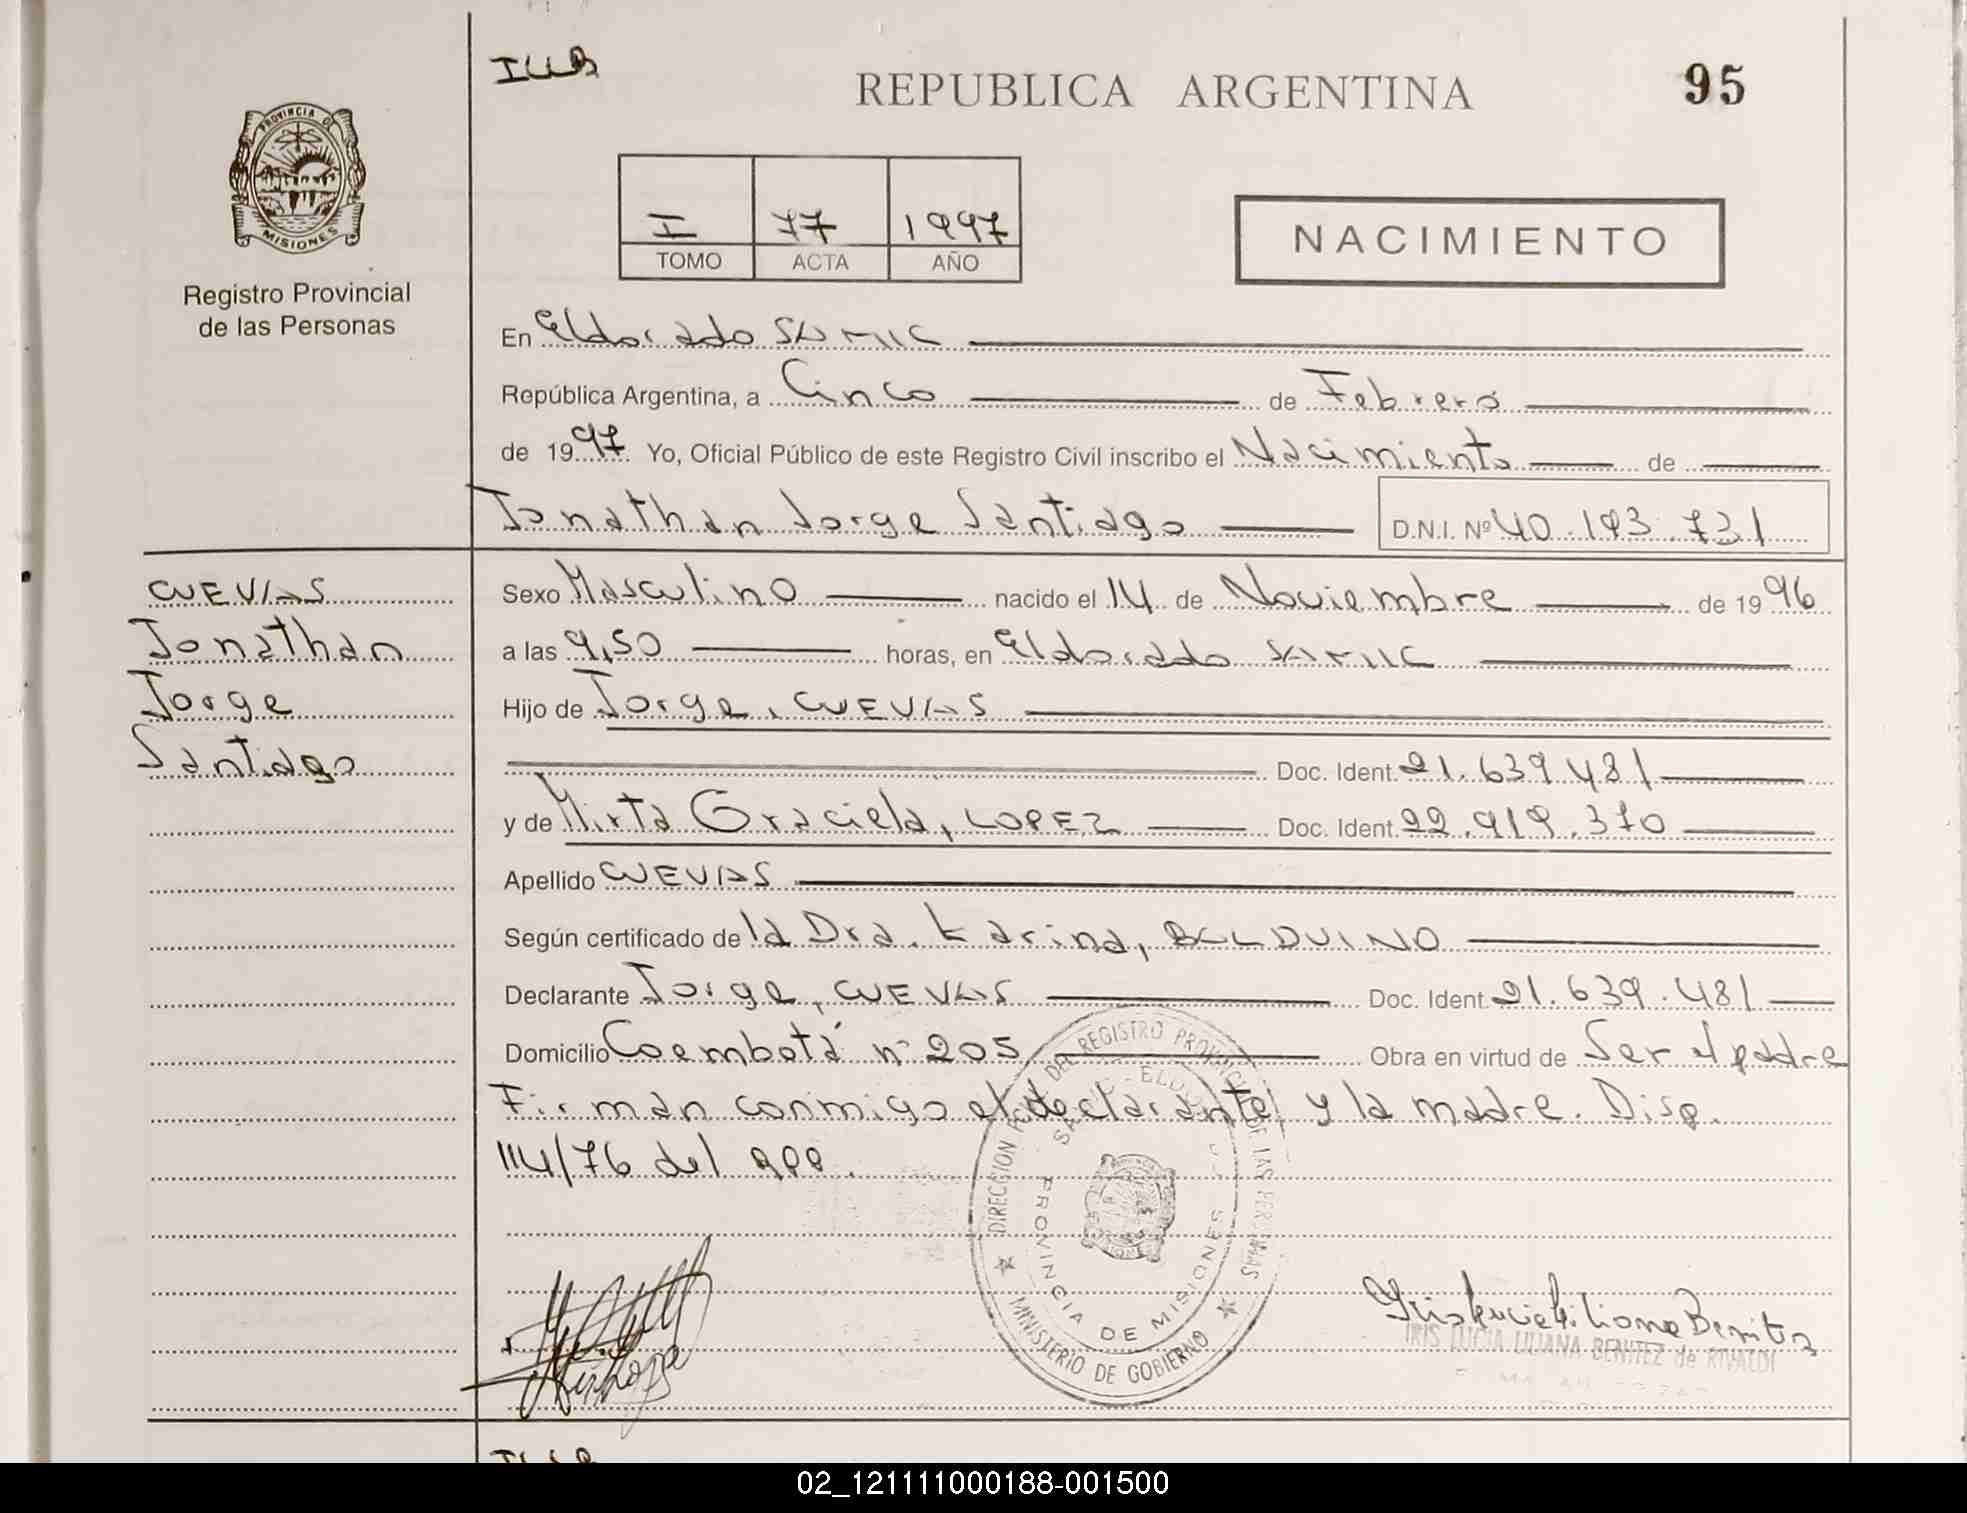 ILLB
REPUBLICA ARGENTINA
95
PROVINCIA DE
MISIONES
Registro Provincial
de las Personas
I 77 1997
TOMO ACTA AÑO
NACIMIENTO
En Eldorado SAMIC
República Argentina, a Cinco de Febrero
de 1997 Yo, Oficial Público de este Registro Civil inscribo el Nacimiento de
Jonathan Jorge Santiago D.N.I. Nº 40.193.731
CUEVAS
Jonathan
Jorge
Santiago
Sexo Masculino nacido el 14 de Noviembre de 1996
a las 9,50 horas, en Eldorado SAMIC
Hijo de Jorge, CUEVAS
Doc. Ident. 21.639.481
y de Mirta Graciela, LOPEZ Doc. Ident. 22.919.370
Apellido CUEVAS
Según certificado de la Dra. Karina, BOLDUINO
Declarante Jorge, CUEVAS Doc. Ident. 21.639.481
Domicilio Caembotá nº 205 Obra en virtud de Ser el padre
Firman conmigo el declarante y la madre. Disp.
114/76 del RPP.
DIRECCION DEL REGISTRO PROVINCIAL DE LAS PERSONAS
MINISTERIO DE GOBIERNO
PROVINCIA DE MISIONES
Iris Lucia Liliana Benitez
IRIS LUCIA LILIANA BENITEZ de RIVALDI
02_121111000188-001500